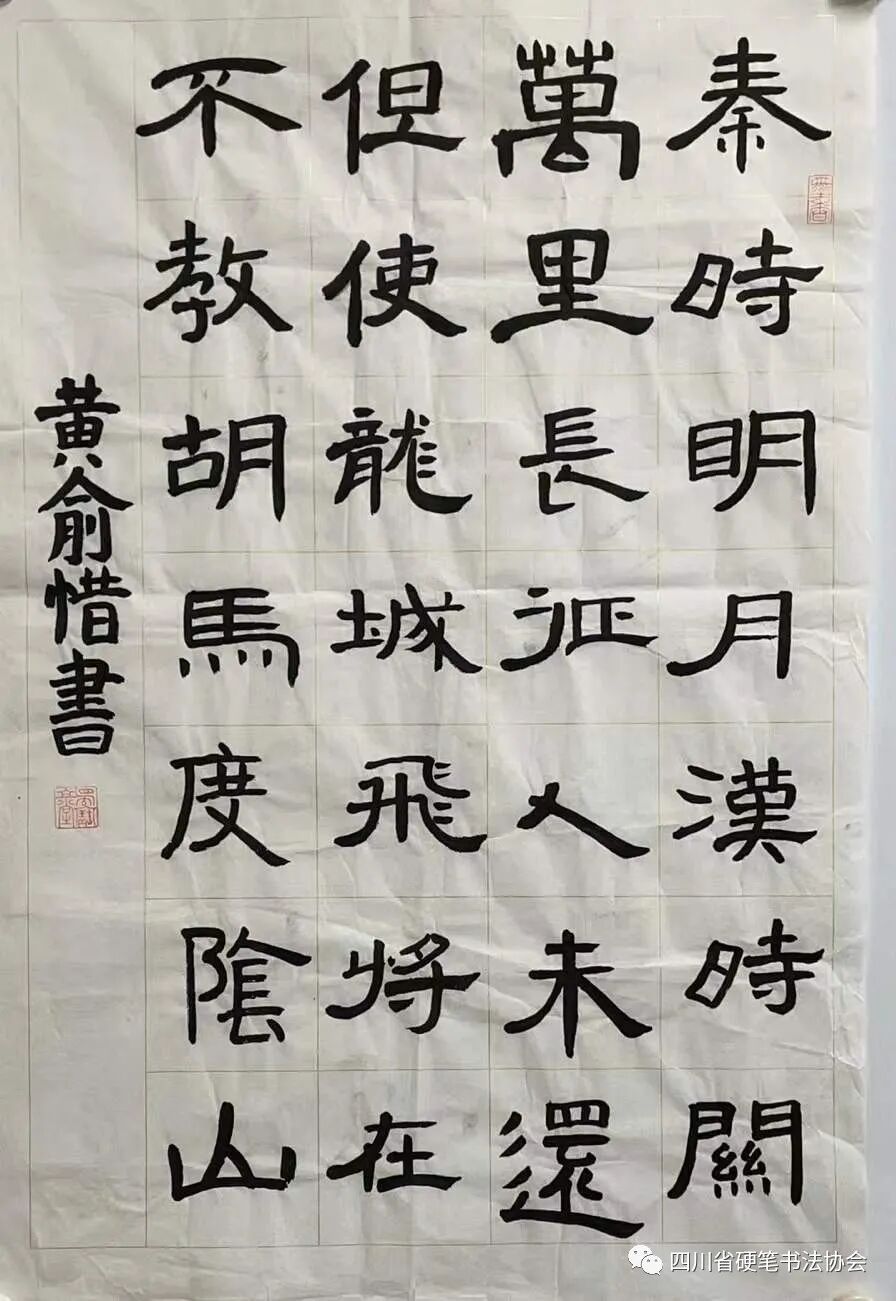 秦時明月漢時關
萬里長征人未還
但使龍城飛將在
不教胡馬度陰山
黄俞惜書
四川省硬笔书法协会